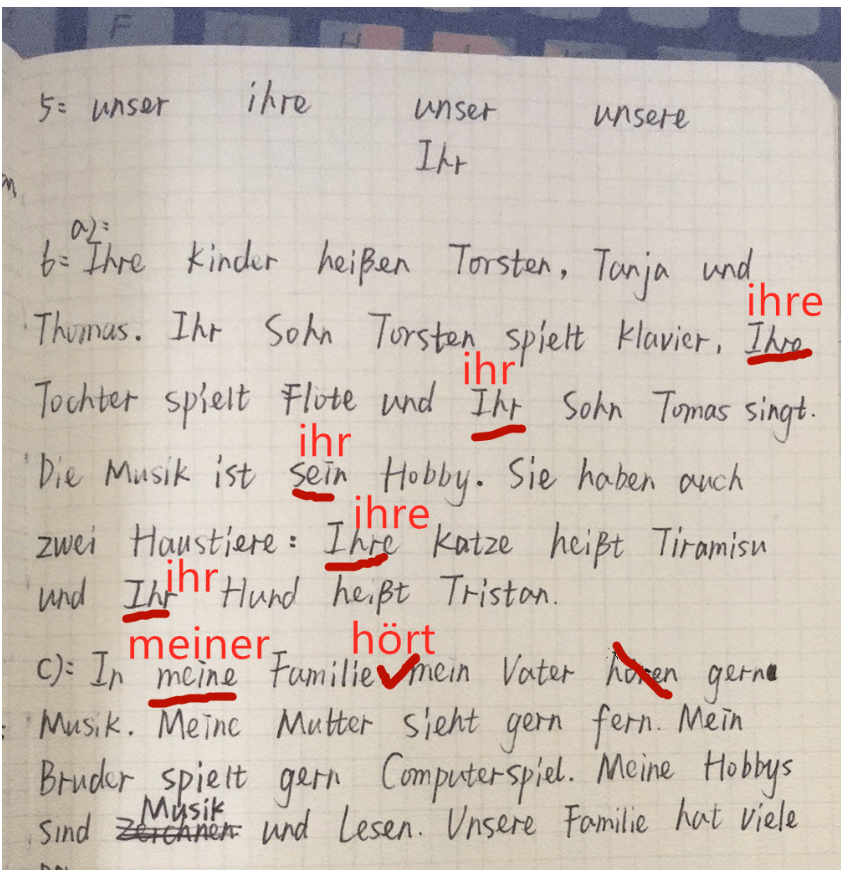 5= unser ihre unser unsere
Ihr
a)=
6= Ihre Kinder heißen Torsten, Tanja und
ihre
Thomas. Ihr Sohn Torsten spielt Klavier, Ihre
ihr
Tochter spielt Flöte und Ihr Sohn Tomas singt.
ihr
Die Musik ist sein Hobby. Sie haben auch
ihre
zwei Haustiere: Ihre Katze heißt Tiramisu
ihr
und Ihr Hund heißt Tristan.
meiner hört
C)= In meine Familie mein Vater hören gern
Musik. Meine Mutter sieht gern fern. Mein
Bruder spielt gern Computerspiel. Meine Hobbys
Musik
sind zeichnen und Lesen. Unsere Familie hat viele